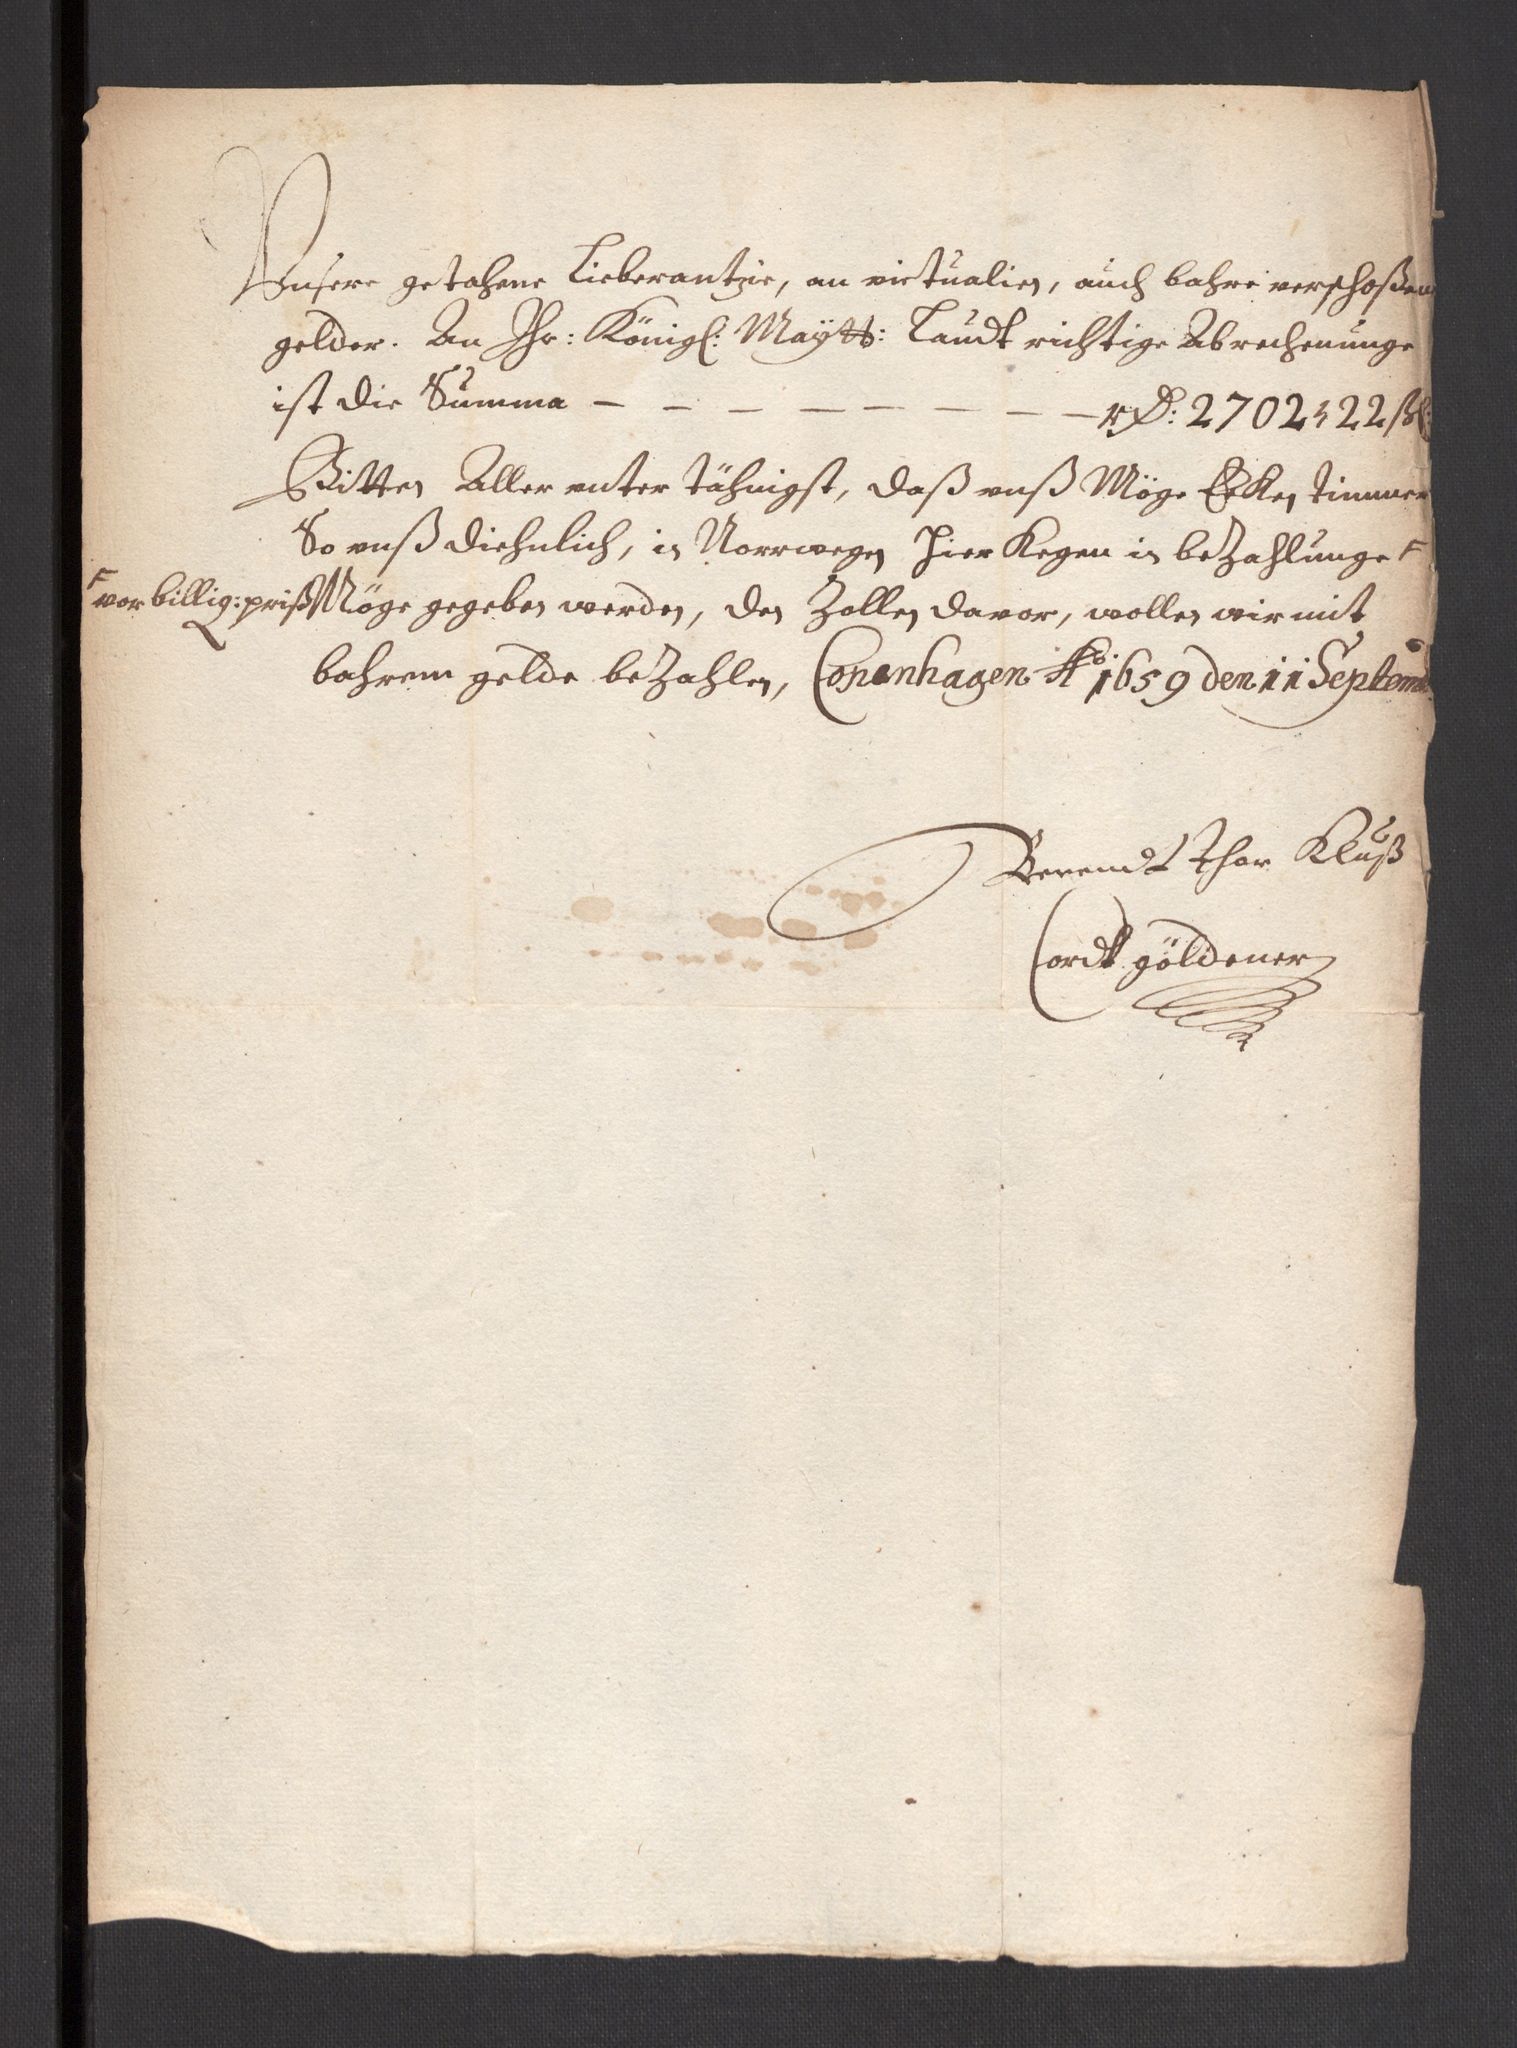 Vnsere getahene Lieberantzie, an victualien, auch bahre verschoßen
gelder. An Ihr: Königl: Maÿtt: Laudt richtige Abrechenunge
ist die Summa — — — — — — — — rD: 2702 22 ßl:
Bitten Aller vnter tähnigst, daß vnß Möge Eeken timmer
So vnß diehnlich, in Norrwegen hier kegen in beZahlunge F
F vor billig: priß Möge gegeben werden, den Zollen davor, wollen wir mit
bahrem gelde beZahlen, Copenhagen Ao 1659 den 11 Septemb
Berendt thor Kluß
Cordt göldener